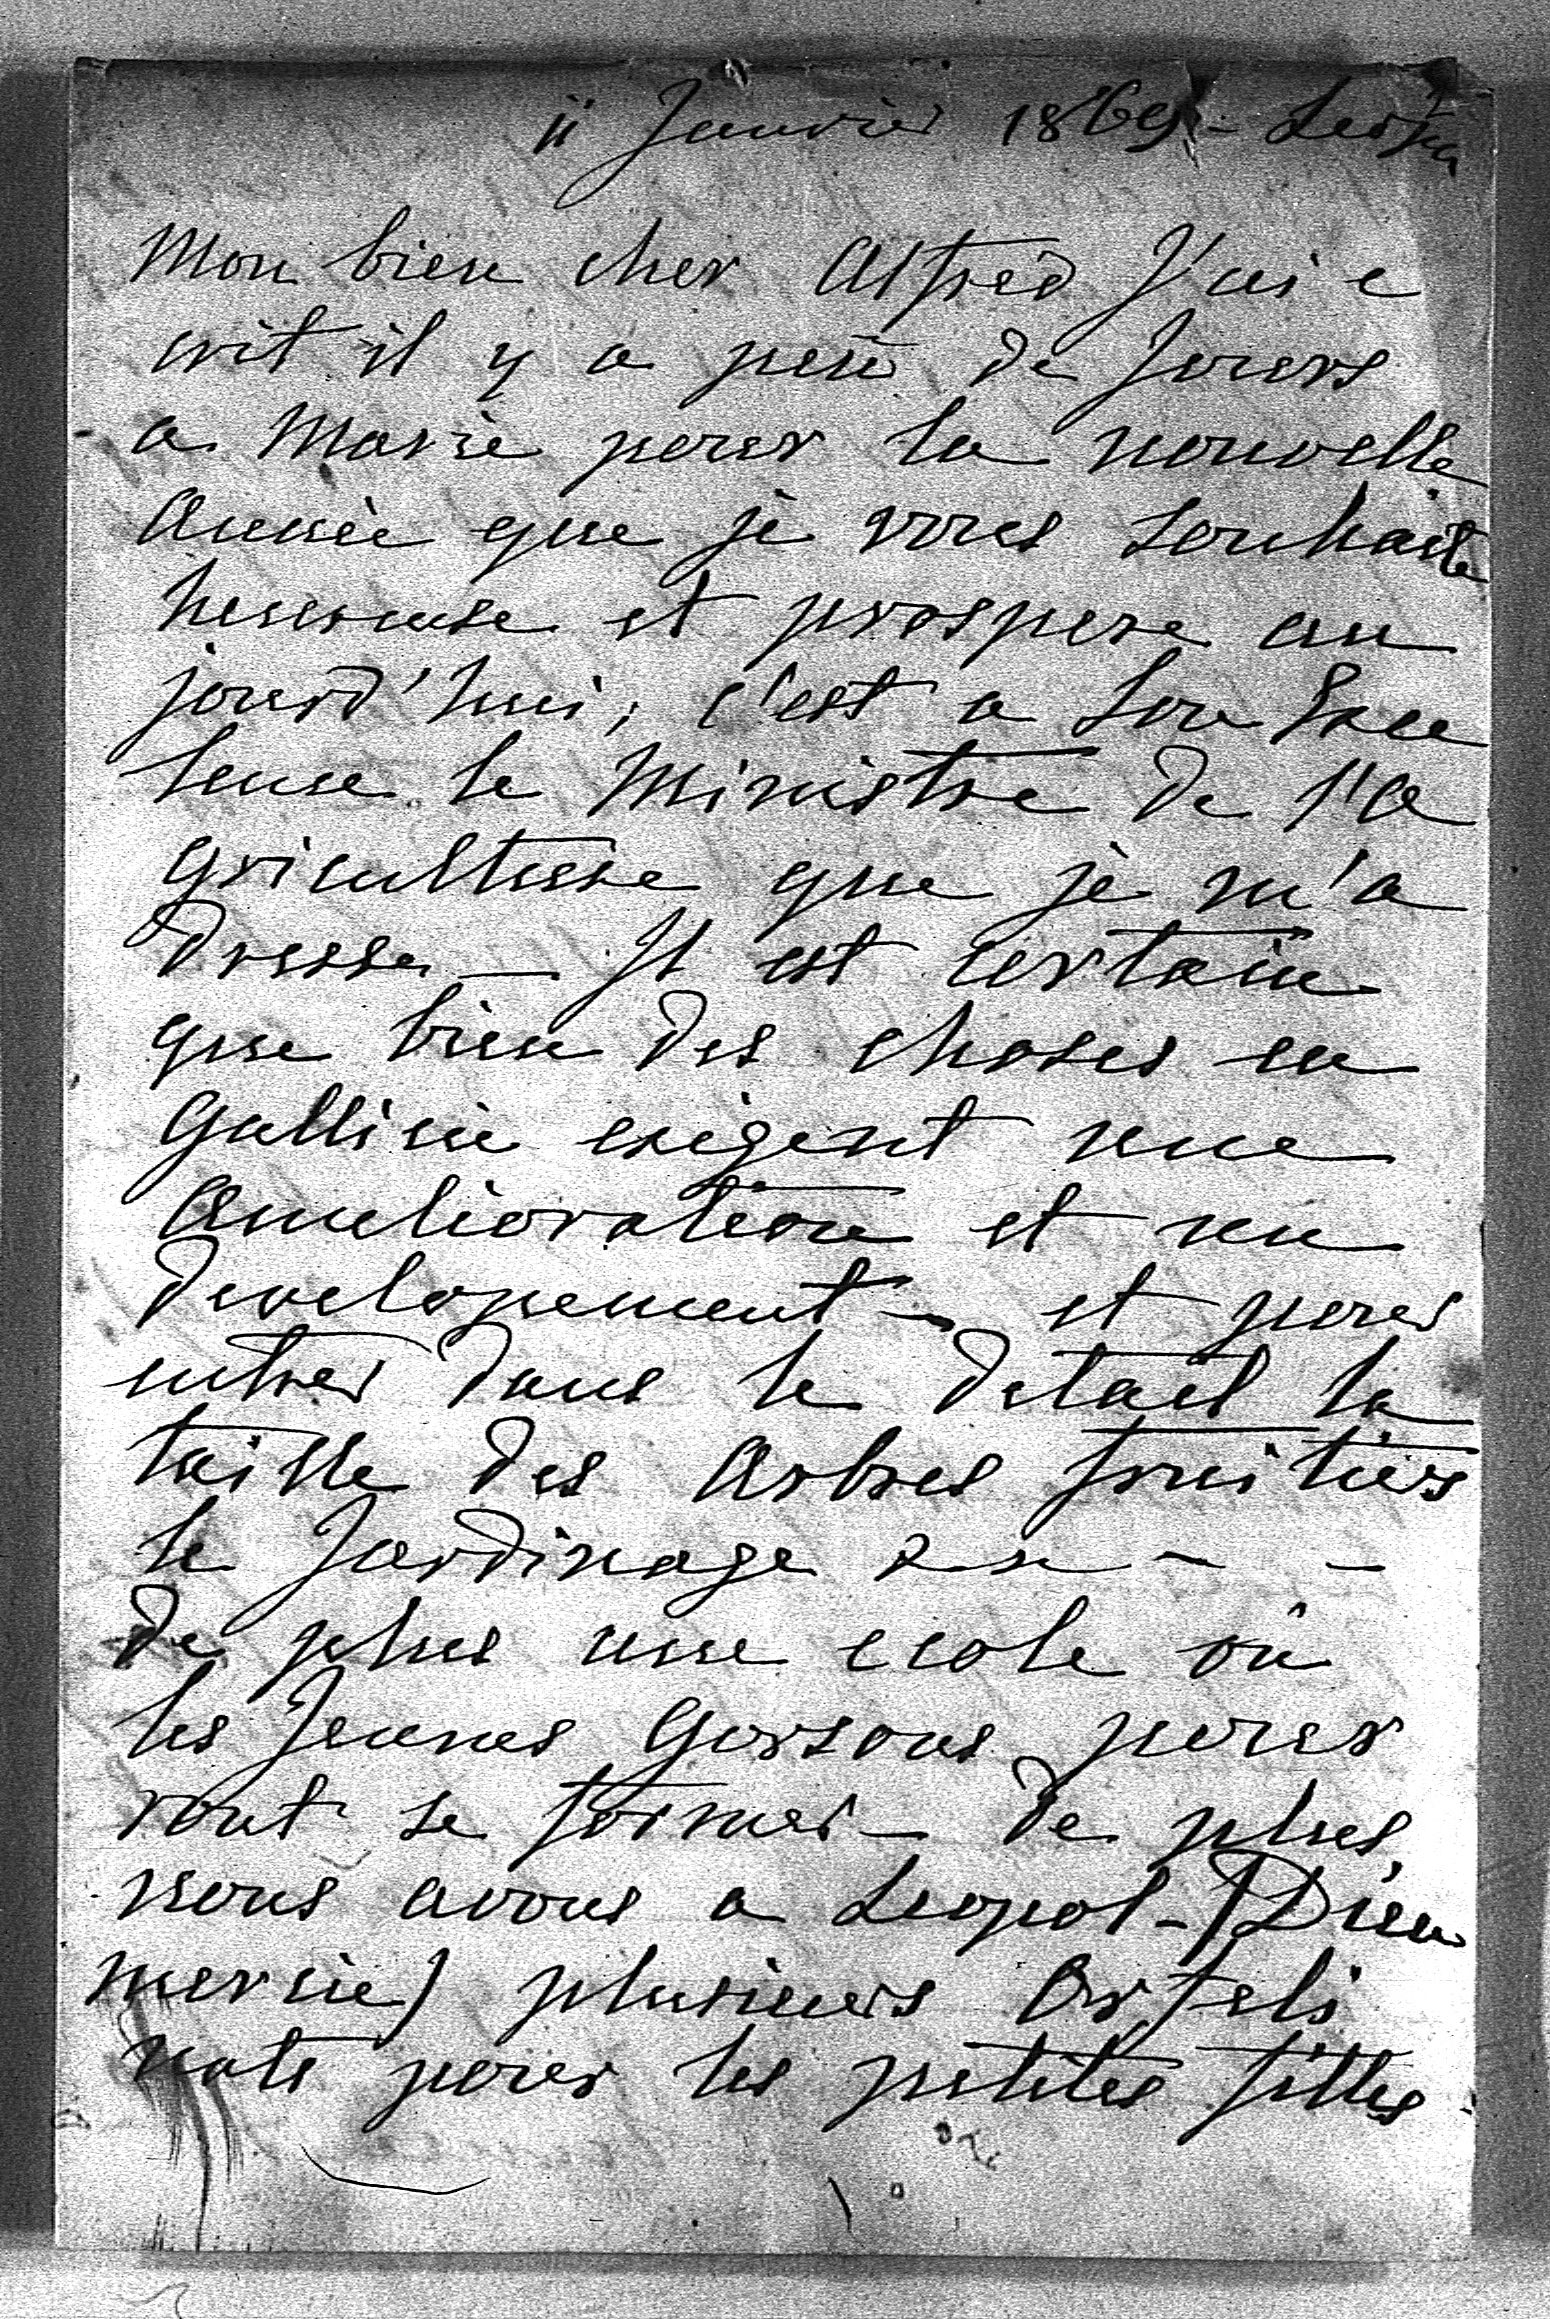 11 Janvier 1869 - Leszka
Mon bien cher Alfred J'ai e
crit il y a peu de Jours
a Marie pour la nouvelle
Année que je vous souhaite
heureuse et prospere au
jourd'hui, c'est a Son Exce
lence le Ministre de l'A
griculture que je m'a
dresse - Il est certain
que bien des choses en
Gallicie exigent une
Amelioration et un
developement - et pour
entrer dans le detail la
taille des Arbres fruitiers
le Jardinage
de plus une ecole où
les Jeunes Garsons pour
ront se former - de plus
nous avons a Leopol - (Dieu
mercie) plusieurs Orfeli
nats pour les petites filles